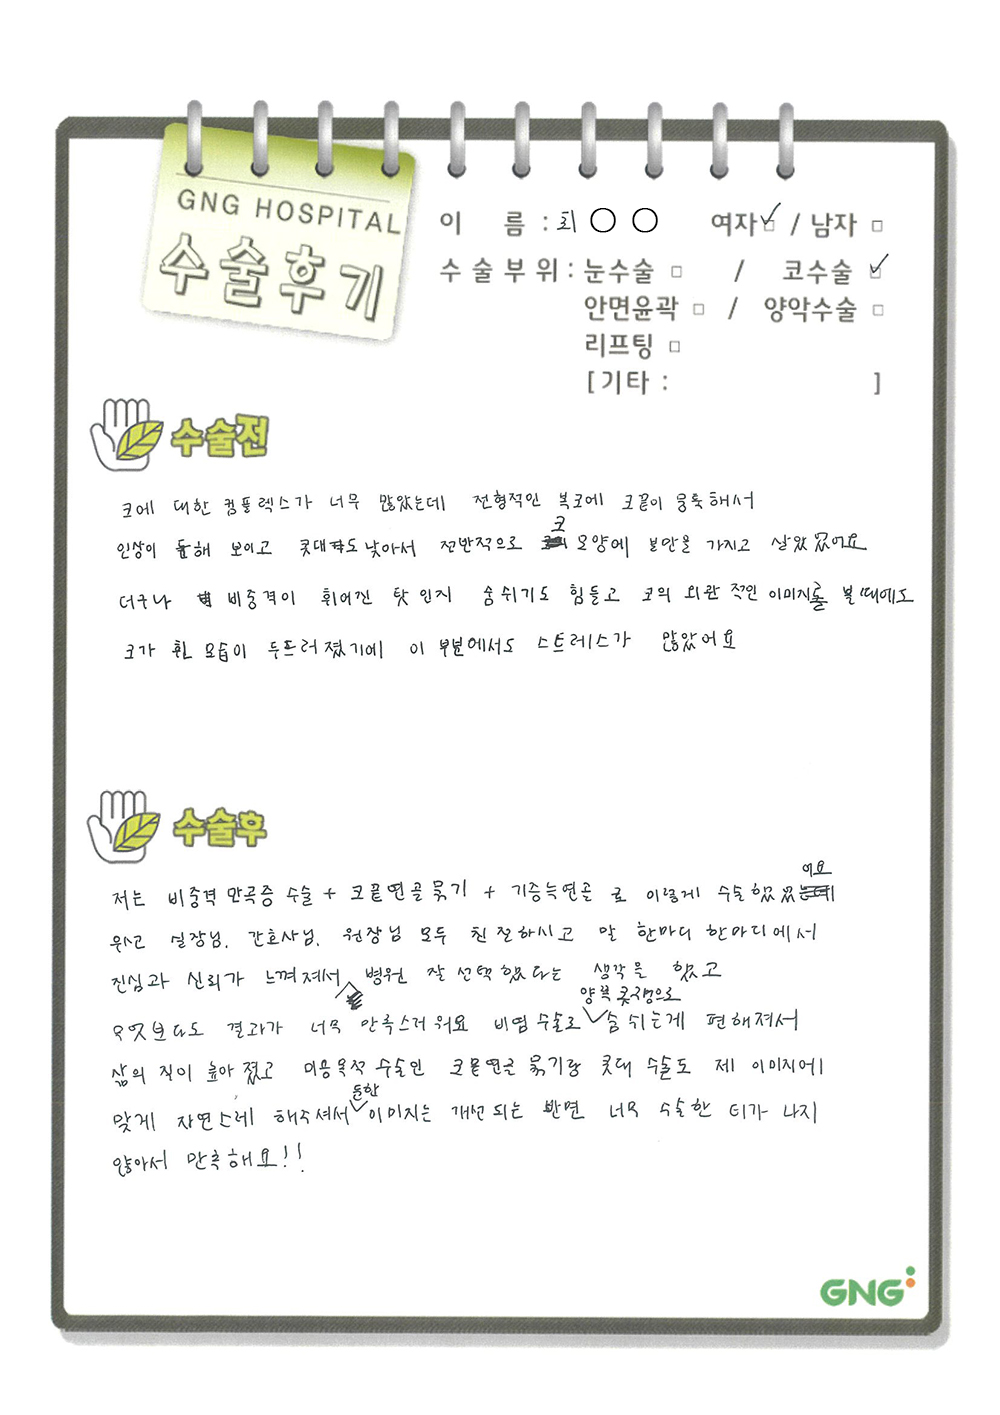 GNG HOSPITAL
수술후기
이 름 : 최 ○ ○ 여자 ✓ / 남자 □
수술부위 : 눈수술 □ / 코수술 ✓
안면윤곽 □ / 양악수술 □
리프팅 □
[기타 : ]
수술전
코에 대한 컴플렉스가 너무 많았는데 전형적인 복코에 코끝이 뭉툭해서
인상이 둔해 보이고 콧대도 낮아서 전반적으로 코 모양에 불만을 가지고 살았었어요
더구나 비중격이 휘어진 탓인지 숨쉬기도 힘들고 코의 외관적인 이미지를 볼때에도
코가 휜 모습이 두드러졌기에 이 부분에서도 스트레스가 많았어요
수술후
저는 비중격 만곡증 수술 + 코끝연골묶기 + 기증늑연골로 이렇게 수술했었어요
우선 실장님, 간호사님, 원장님 모두 친절하시고 말 한마디 한마디에서
진심과 신뢰가 느껴져서 병원 잘 선택했다는 생각을 했고
무엇보다도 결과가 너무 만족스러워요 비염수술로 양쪽 콧구멍으로 숨쉬는게 편해져서
삶의 질이 높아졌고 미용목적 수술인 코끝연골 묶기랑 콧대 수술도 제 이미지에
맞게 자연스레 해주셔서 둔한 이미지는 개선되는 반면 너무 수술한 티가 나지
않아서 만족해요!!
GNG